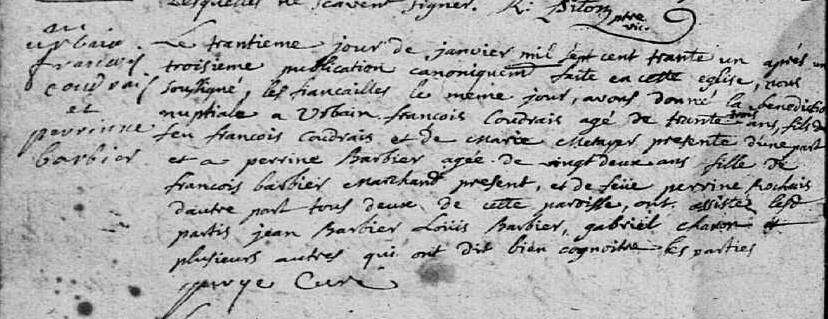 lesquelles ne scavent signer. R: Pilon ptre
vic.
Urbain
francois
coudrais
et
perrinne
barbier
Le trantieme jour de janvier mil sept cent trante un après
troisieme publication canoniquem faite en cette eglise, nous
soussigné, les fiancailles le meme jour, avons donné la benediction
nuptiale a Urbain françois Coudrais agé de trante trois ans, fils de
feu françois Coudrais et de Marie Metayer presente d'une part
et a perrine Barbier agee de vingt deux ans fille de
francois barbier Marchand present, et de feüe perrine Rochais
d'autre part tous deux de cette paroisse, ont assisté lesd
partis jean Barbier Loüis Barbier, gabriel charon et
plusieurs autres qui ont dit bien cognoitre les parties
Curé